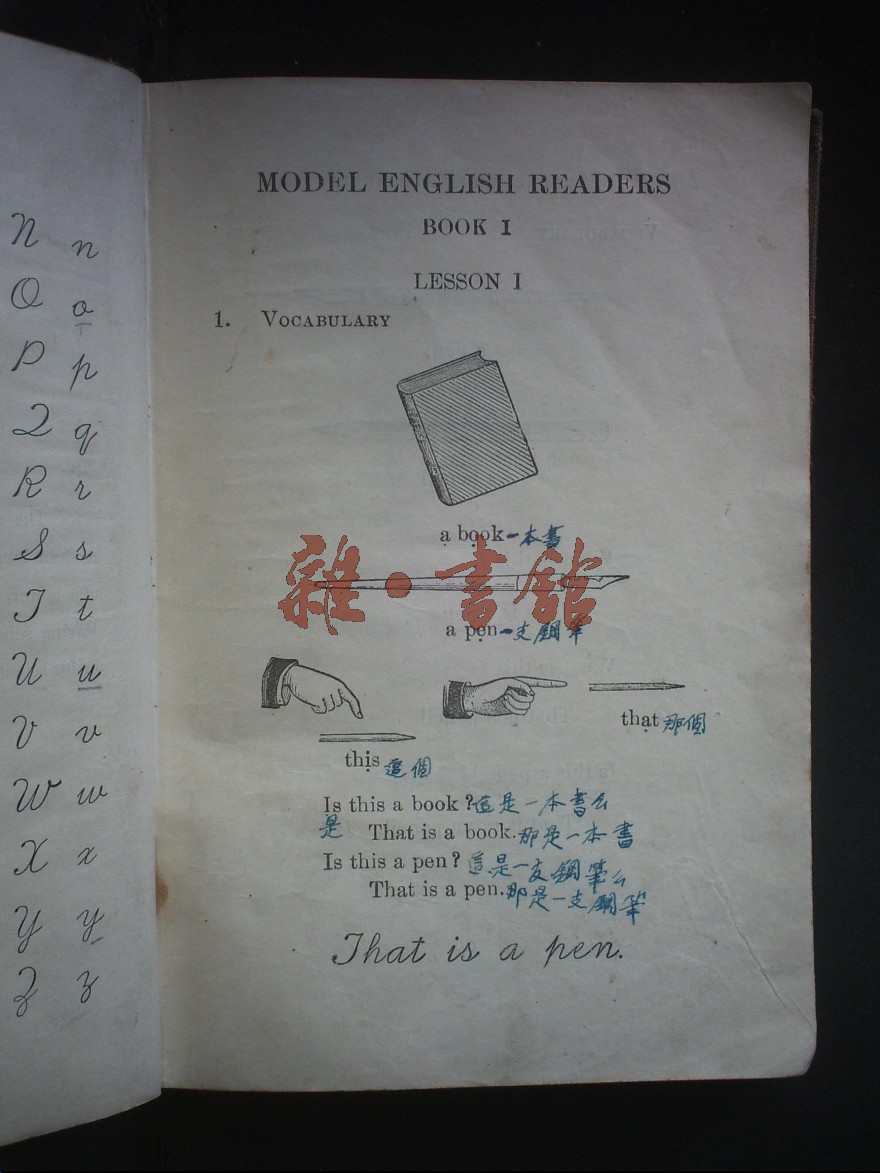 N n
O o
P p
Q q
R r
S s
T t
U u
V v
W w
X x
Y y
Z z
MODEL ENGLISH READERS
BOOK I
LESSON I
1. VOCABULARY
a book 一本書
雜·書館
a pen 一支鋼筆
that 那個
this 這個
Is this a book? 這是一本書么
是 That is a book. 那是一本書
Is this a pen? 這是一支鋼筆么
That is a pen. 那是一支鋼筆
That is a pen.